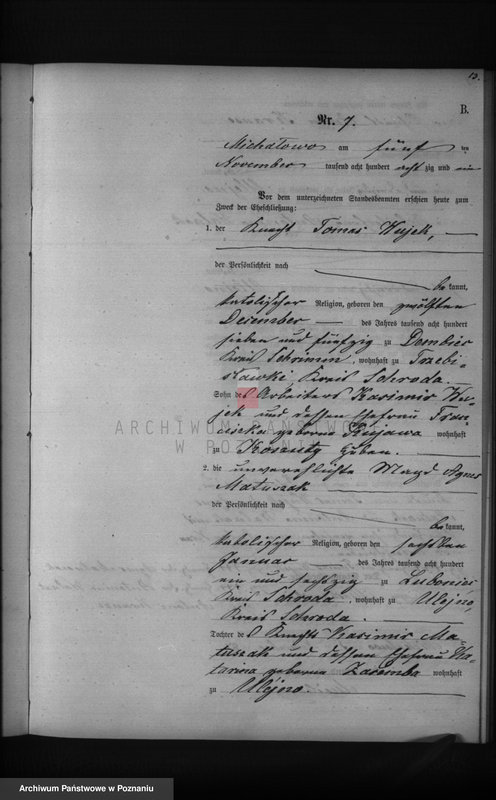 13.
B.
Nr. 7.
Michałowo am fünf ten
November tausend acht hundert acht zig und ein
Vor dem unterzeichneten Standesbeamten erschien heute zum
Zweck der Eheschließung:
1. der Knecht Tomas Wujek,
der Persönlichkeit nach
be kannt,
katolischer Religion, geboren den zwölften
December des Jahres tausend acht hundert
sieben und fünfzig zu Dombiec
Kreis Schrimm, wohnhaft zu Trzebi-
sławki, Kreis Schroda.
Sohn des Arbeiters Kasimir Wu-
jek und dessen Ehefrau Fran-
ciska geborene Kujawa wohnhaft
zu
2. die unverehlichte Magd Agnes
Matuszak
der Persönlichkeit nach
be kannt,
katolischer Religion, geboren den sechsten
Januar des Jahres tausend acht hundert
ein und sechszig zu
Kreis Schroda, wohnhaft zu Ulejno,
Kreis Schroda.
Tochter des Knechts Kasimir Ma-
tuszak und dessen Ehefrau Ka-
tarina geborene Zaremba wohnhaft
zu Ulejno.
ARCHIWUM PAŃSTWOWE
W POZNANIU
Archiwum Państwowe w Poznaniu